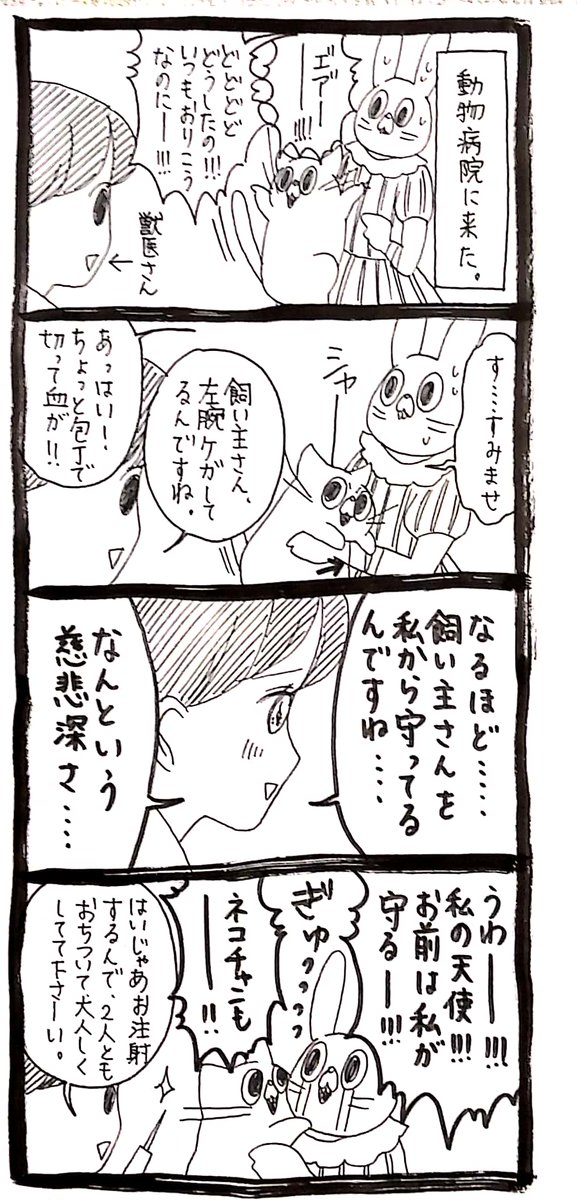 動物病院に来た。
エアー
ーー!!!!
どどどど
どうしたの!!!
いつもおりこう
なのにー!!!
獣医さん
す…すみませ
シャー
飼い主さん、
左腕ケガして
るんですね。
あっはい!、
ちょっと包丁で
切って血が!!
なるほど……
飼い主さんを
私から守ってる
んですね……
なんという
慈悲深さ……
うわーー!!!
私の天使!!!
お前は私が
守るー!!!
ぎゅっっっっ
ネコチャンも
ーー!!
はいじゃあお注射
するんで、2人とも
おちついて大人しく
してて下さーい。